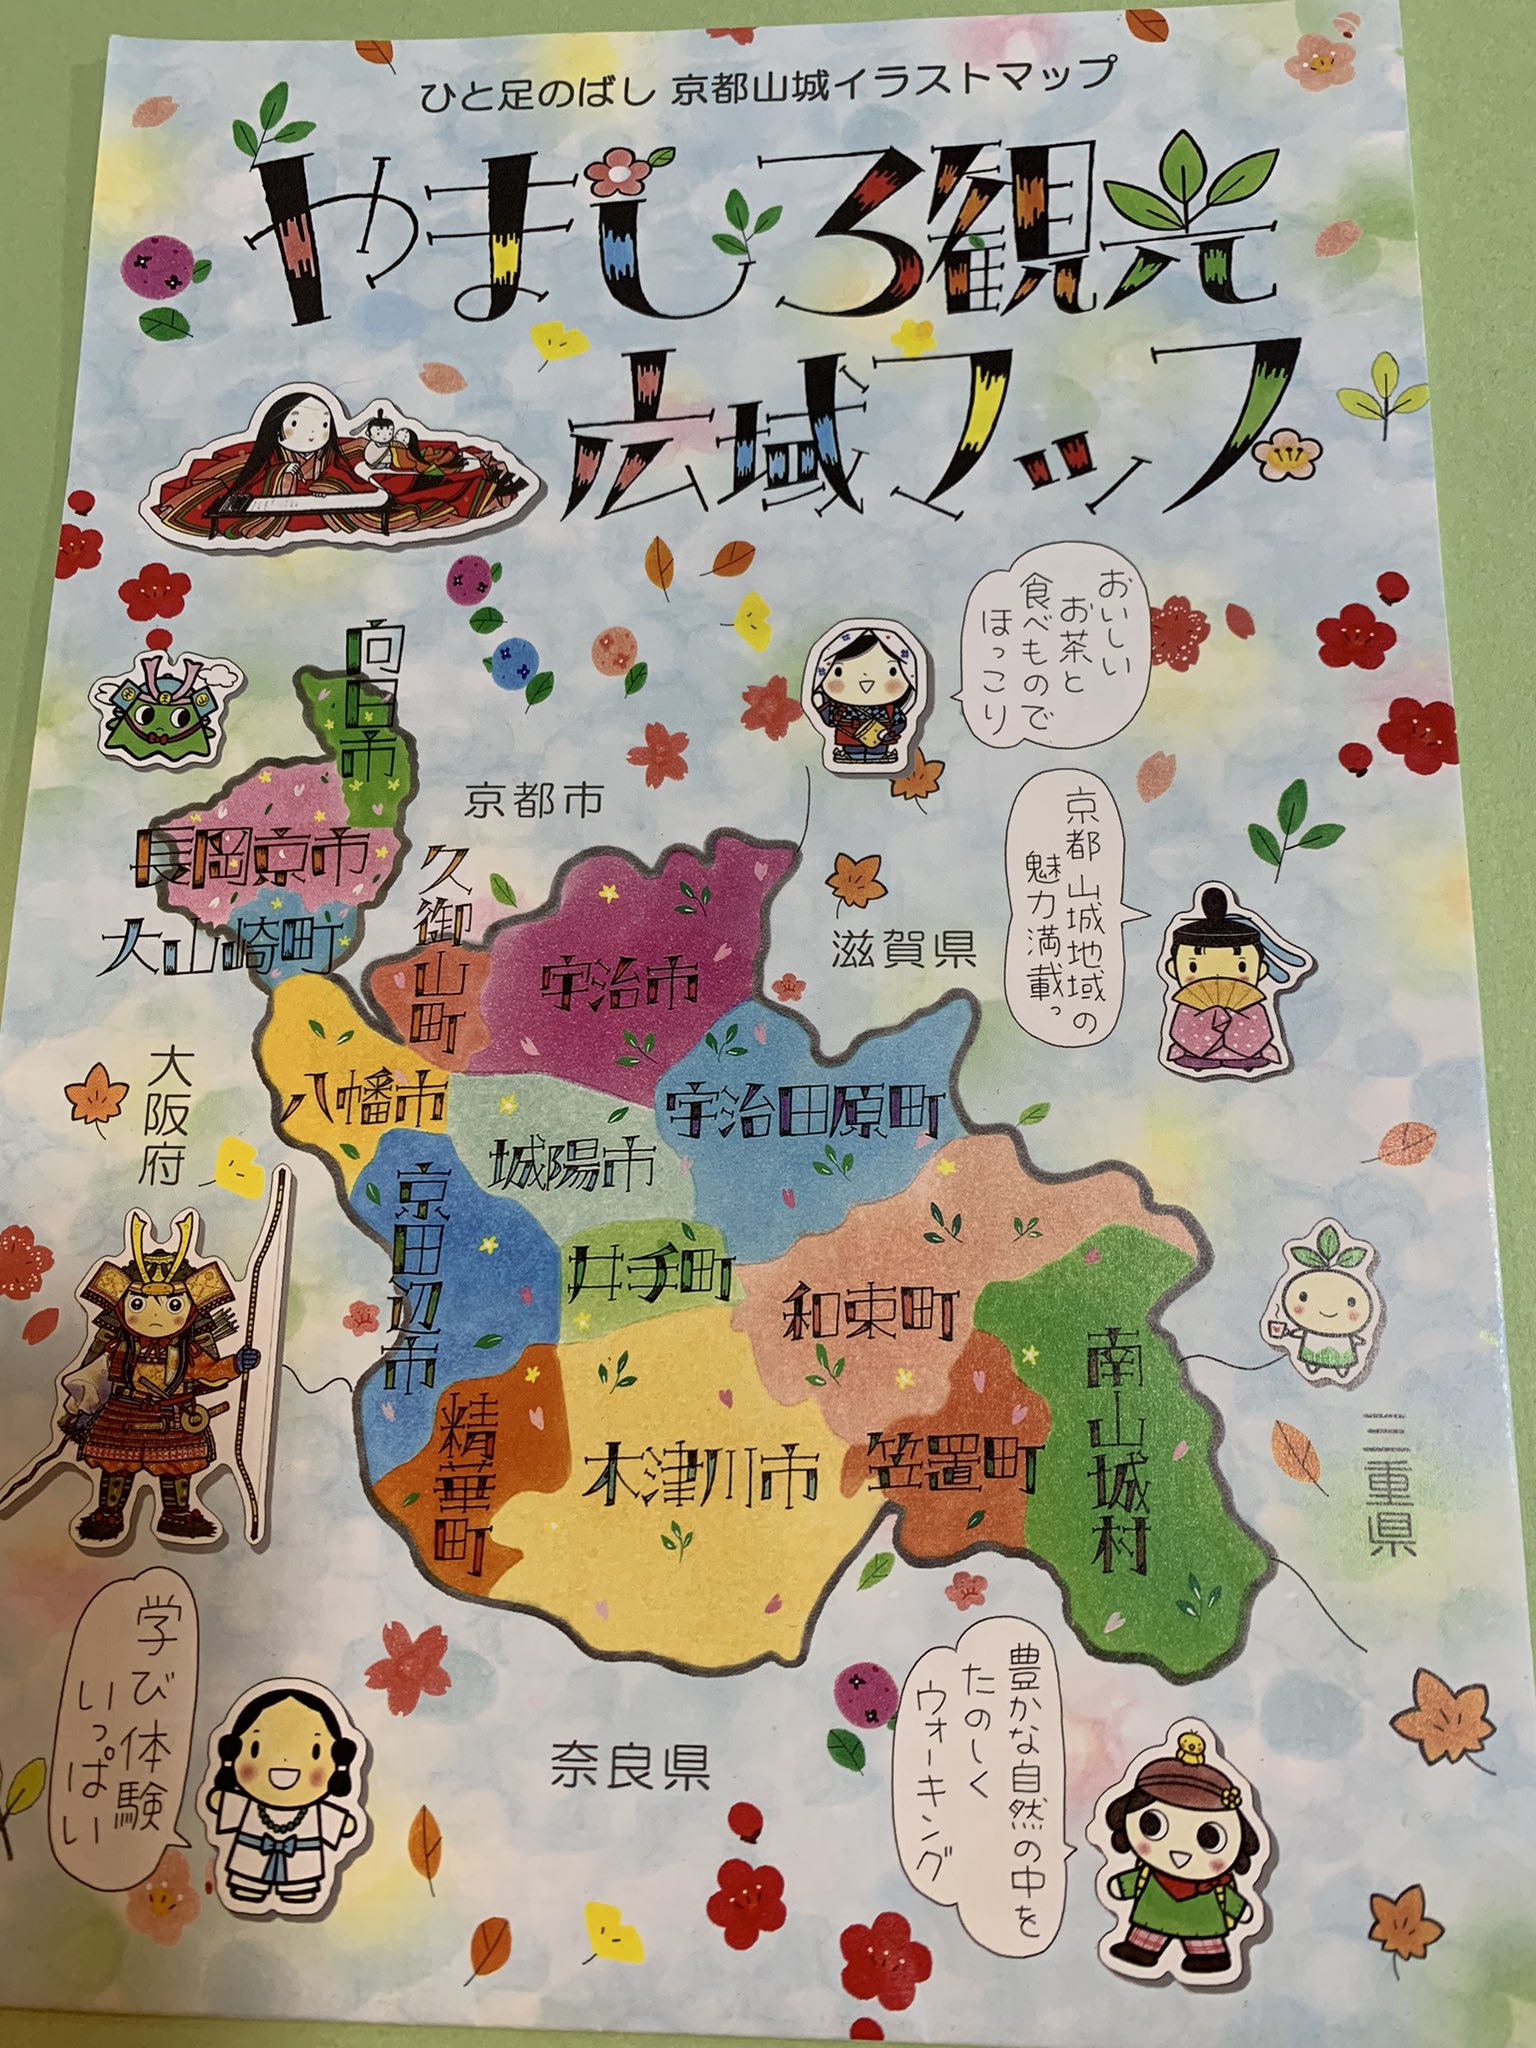 ひと足のばし 京都山城イラストマップ
やましろ観光
広域マップ
おいしい
お茶と
食べもので
ほっこり
向日市
京都市
長岡京市
久御山町
大山崎町
宇治市
滋賀県
京都山城地域の
魅力満載っ
大阪府
八幡市
宇治田原町
城陽市
京田辺市
井手町
和束町
南山城村
三重県
精華町
木津川市
笠置町
学び体験
いっぱい
奈良県
豊かな自然の中を
たのしく
ウォーキング